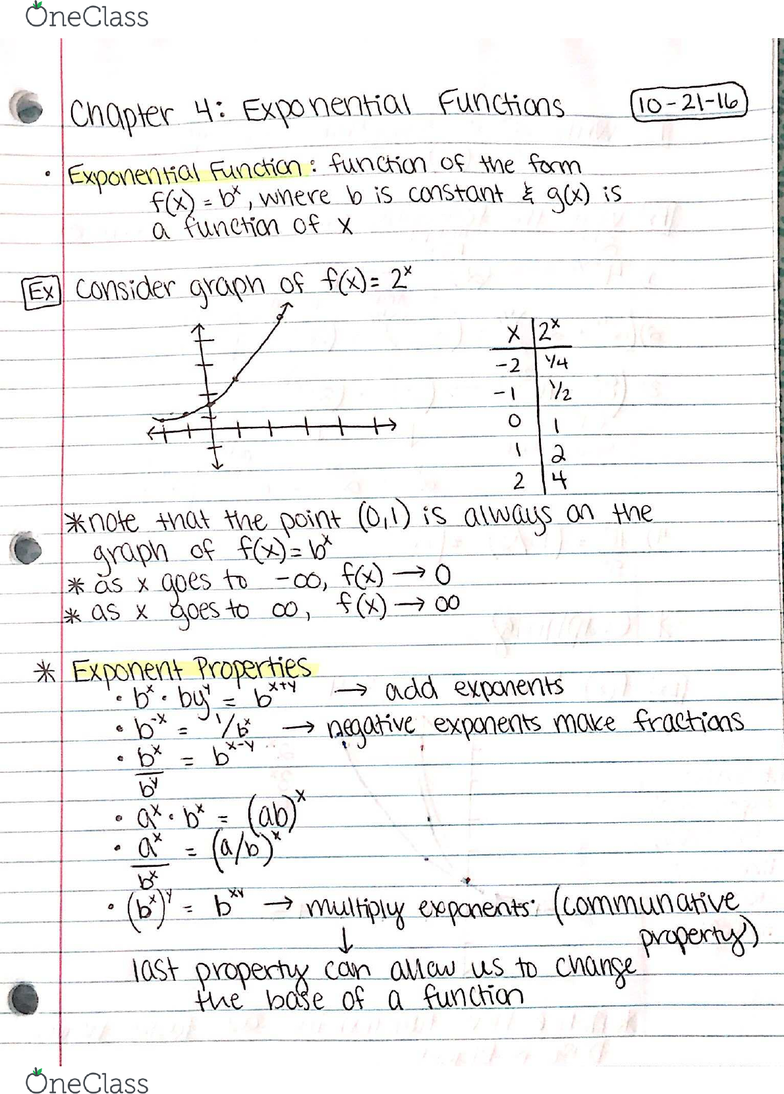 OneClass
Chapter 4: Exponential Functions 10-21-16
• Exponential Function: function of the form
f(x) = bˣ, where b is constant & g(x) is
a function of x
Ex Consider graph of f(x) = 2ˣ
x 2ˣ
-2 1/4
-1 1/2
0 1
1 2
2 4
*note that the point (0,1) is always on the
graph of f(x) = bˣ
* as x goes to -∞, f(x) → 0
* as x goes to ∞, f(x) → ∞
* Exponent Properties
• bˣ • byʸ = bˣ⁺ʸ → add exponents
• b⁻ˣ = 1/bˣ → negative exponents make fractions
• bˣ = bˣ⁻ʸ
bʸ
• aˣ • bˣ = (ab)ˣ
• aˣ = (a/b)ˣ
bˣ
• (bˣ)ʸ = bˣʸ → multiply exponents: (communative
property)
↓
last property can allow us to change
the base of a function
OneClass